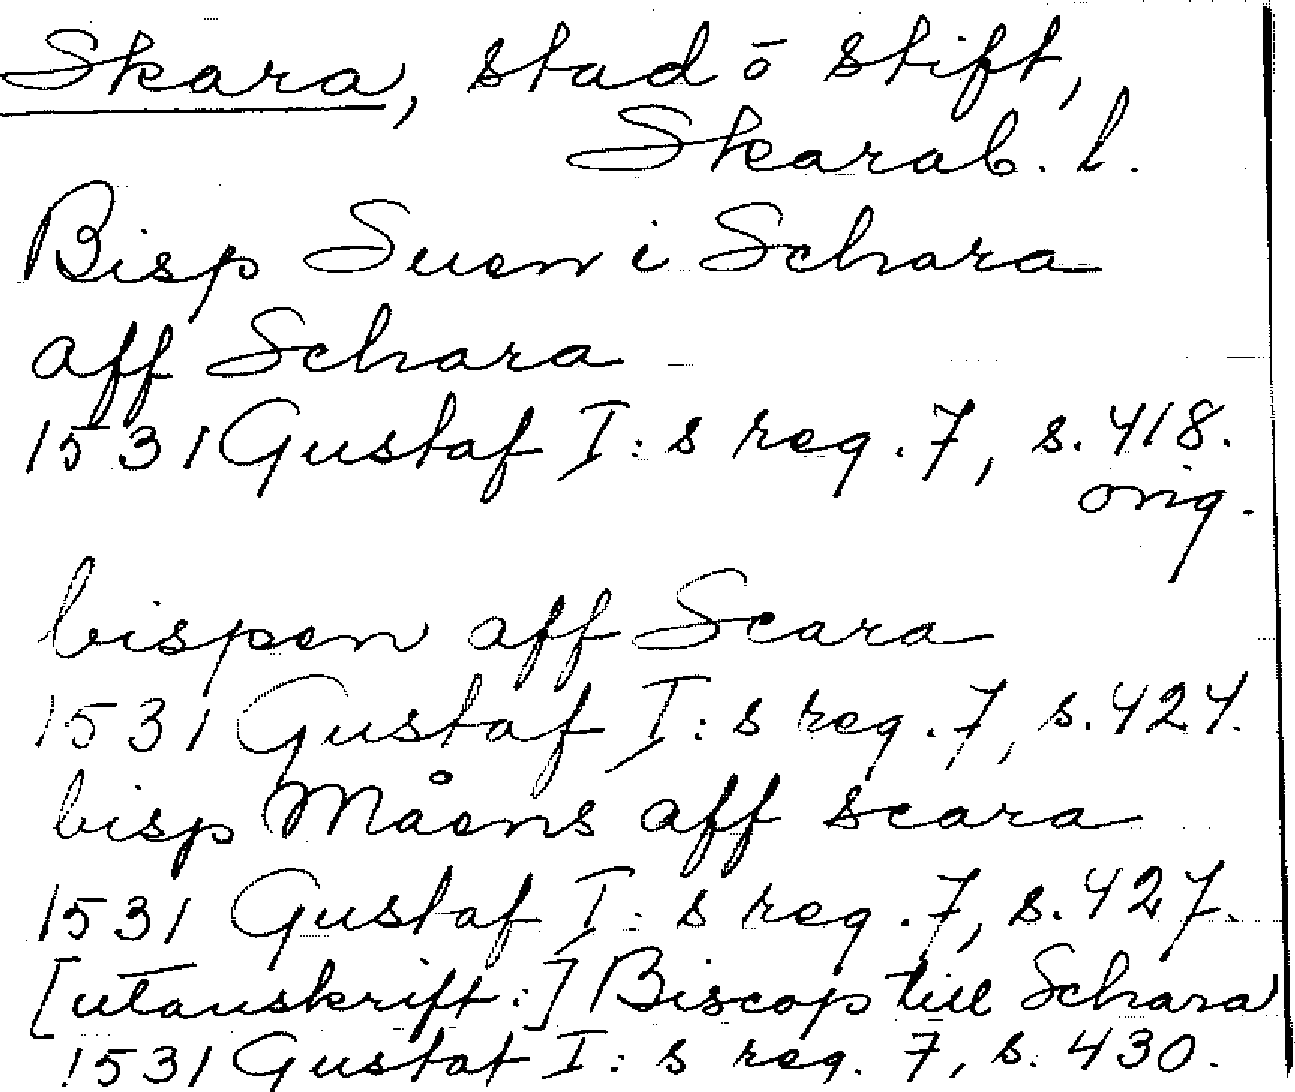 Skara, stad ō stift,
Skarab. l.
Bisp Suen i Schara
aff Schara
1531 Gustaf I:s reg. 7, s. 418.
orig.
bispen aff Scara
1531 Gustaf I:s reg. 7, s. 424.
bisp Måens aff scara
1531 Gustaf I:s reg. 7, s. 427.
[utanskrift:] Biscop till Schara
1531 Gustaf I:s reg. 7, s. 430.